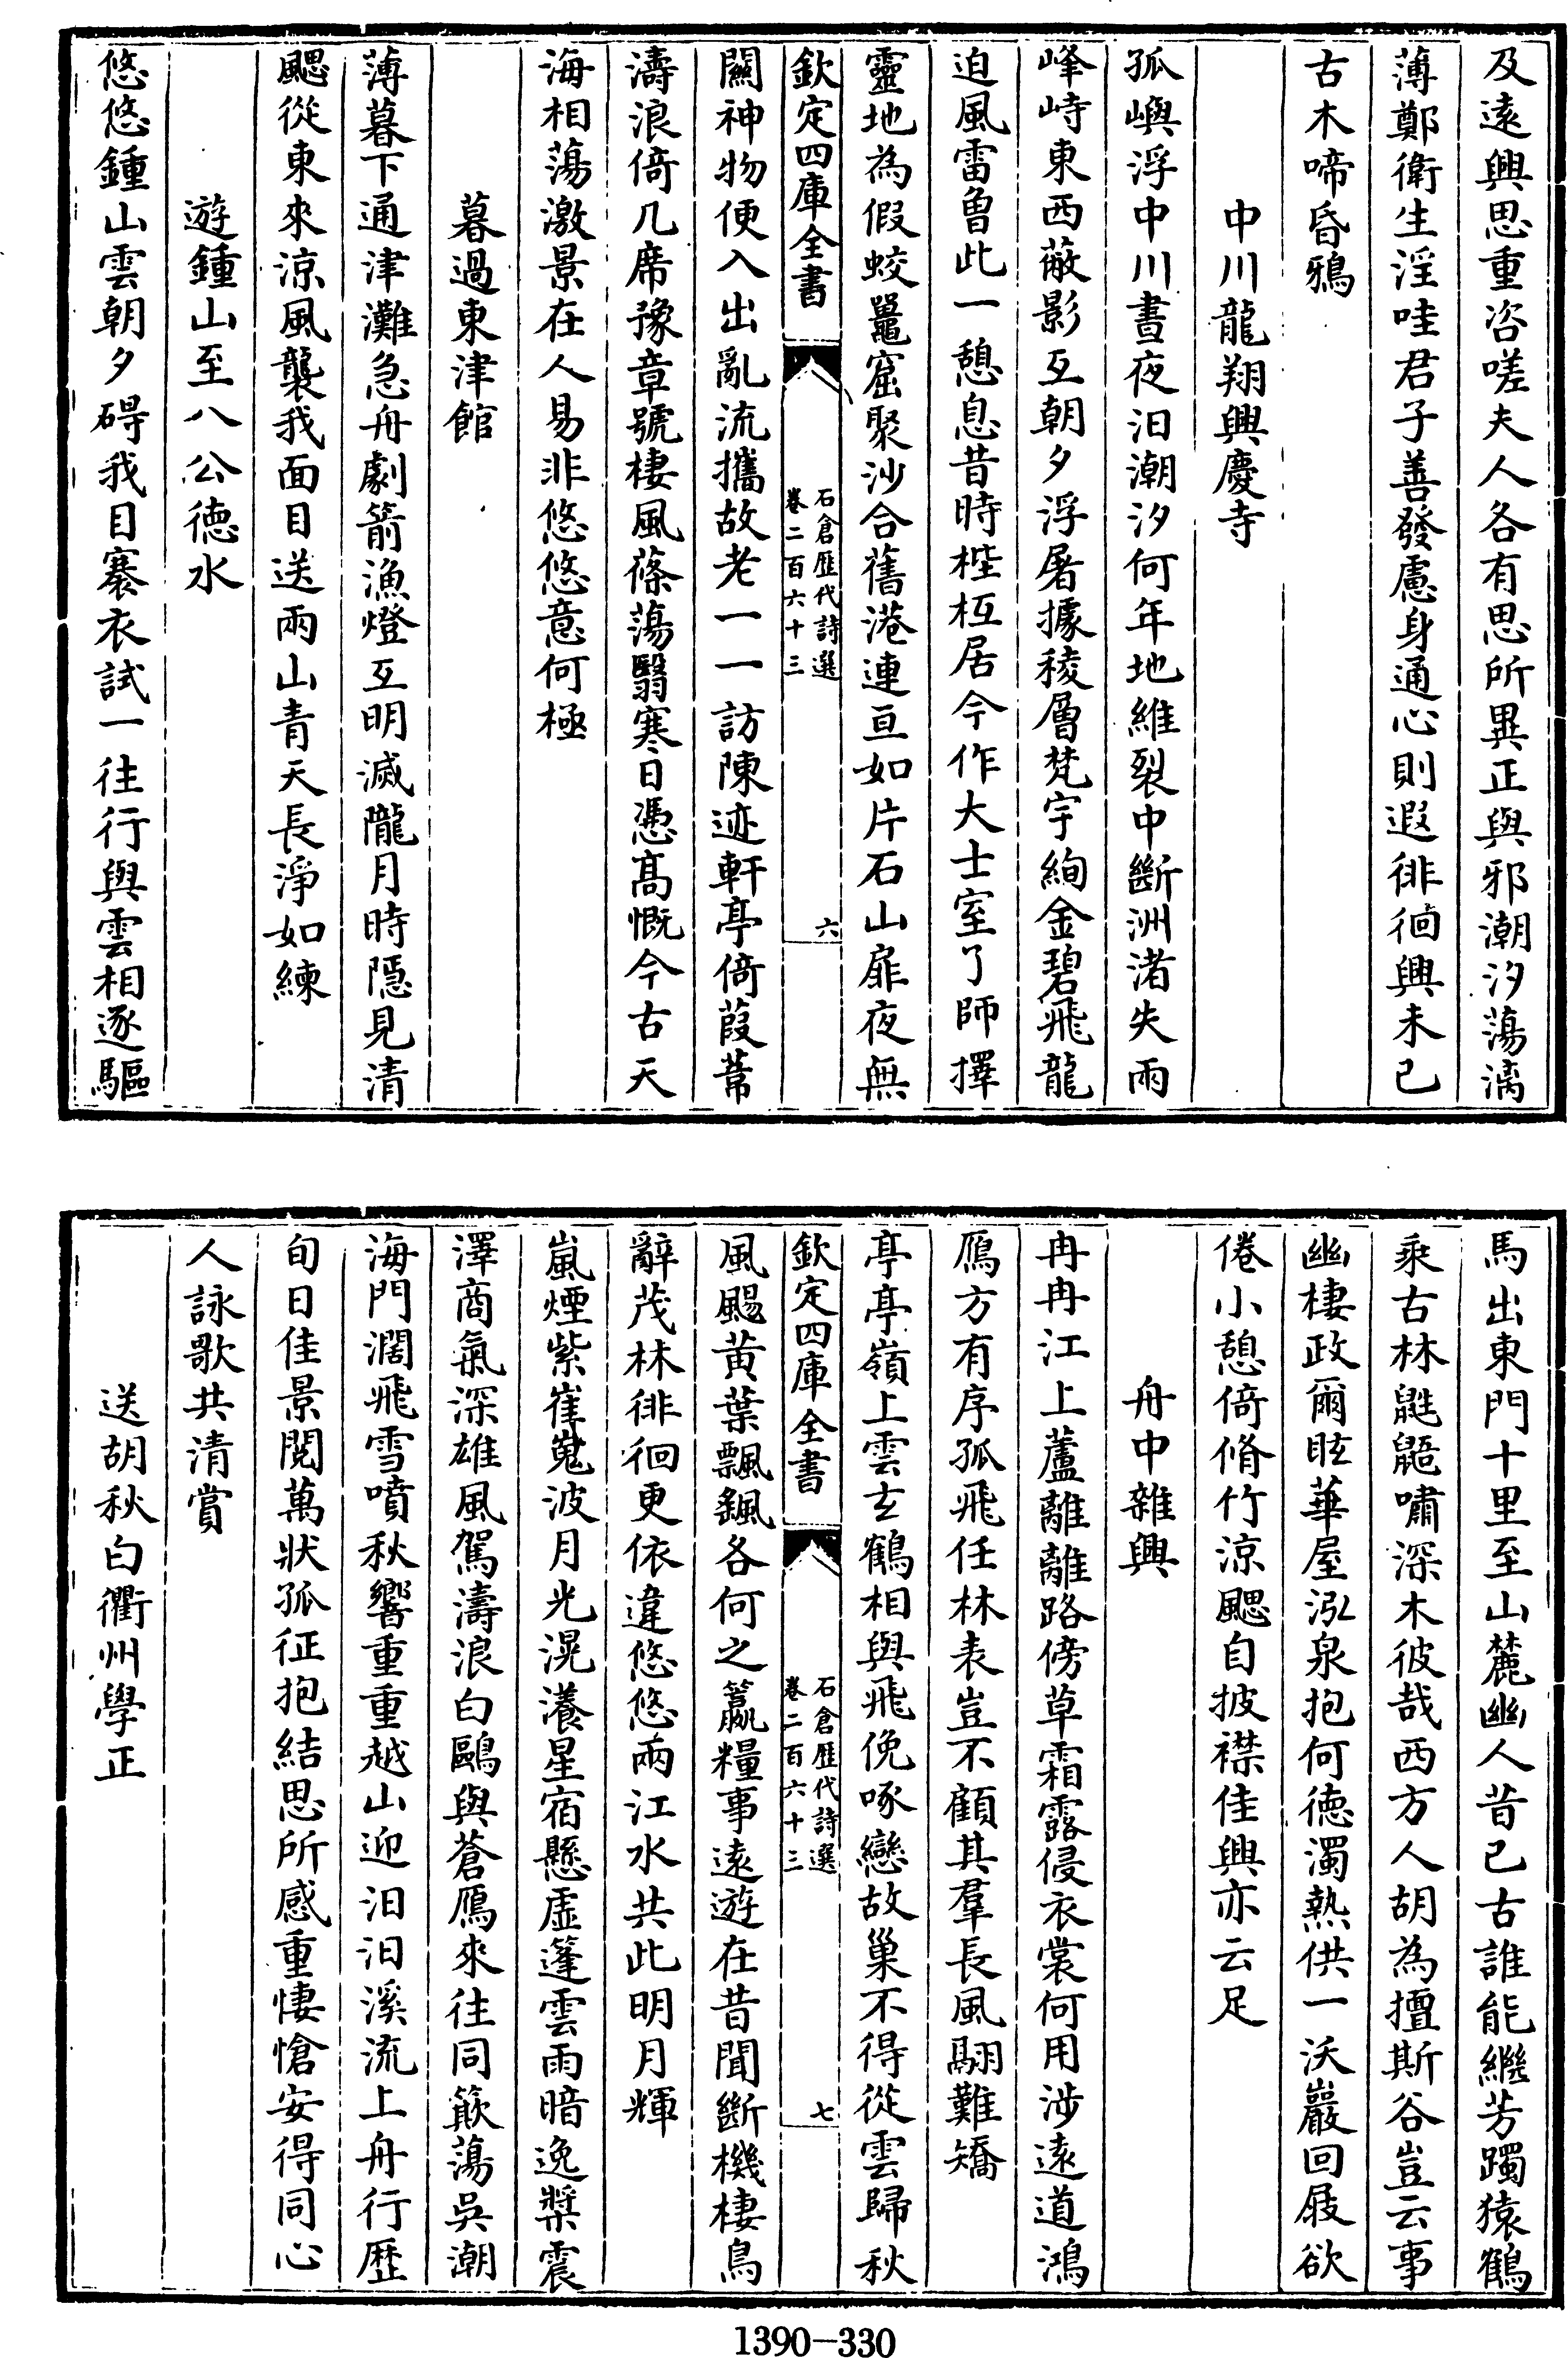 及遠興思重咨嗟夫人各有思所異正與邪潮汐蕩漓
薄鄭衛生淫哇君子善發慮身通心則遐徘徊興未已
古木啼昏鴉
中川龍翔興慶寺
孤嶼浮中川晝夜汨潮汐何年地維裂中斷洲渚失兩
峰峙東西蔽影互朝夕浮屠據稜層梵宇絢金碧飛龍
迫風雷曾此一憩息昔時梐枑居今作大士室了師擇
靈地為假蛟鼉窟聚沙合舊港連亘如片石山扉夜無
欽定四庫全書
石倉歷代詩選
卷二百六十三
六
關神物便入出亂流攜故老一一訪陳迹軒亭倚葭葦
濤浪倚几席豫章號棲風蓧蕩翳寒日憑高慨今古天
海相蕩激景在人易非悠悠意何極
暮過東津館
薄暮下通津灘急舟劇箭漁燈互明滅隴月時隱見清
颸從東來涼風襲我面目送兩山青天長淨如練
遊鍾山至八公德水
悠悠鍾山雲朝夕碍我目褰衣試一往行與雲相逐驅
馬出東門十里至山麓幽人昔已古誰能繼芳躅猿鶴
乘古林鼪鼯嘯深木彼哉西方人胡為擅斯谷豈云事
幽棲政爾眩華屋泓泉抱何德濁熱供一沃巖回屐欲
倦小憩倚脩竹涼颸自披襟佳興亦云足
舟中雜興
冉冉江上蘆離離路傍草霜露侵衣裳何用涉遠道鴻
鴈方有序孤飛任林表豈不顧其羣長風翮難矯
亭亭嶺上雲玄鶴相與飛俛啄戀故巢不得從雲歸秋
欽定四庫全書
石倉歷代詩選
卷二百六十三
七
風颺黃葉飄飄各何之籯糧事遠遊在昔聞斷機棲鳥
辭茂林徘徊更依違悠悠兩江水共此明月輝
嵐煙紫崔嵬波月光滉瀁星宿懸虛篷雲雨暗逸槳震
澤商氣深雄風駕濤浪白鷗與蒼鴈來往同簸蕩吳潮
海門濶飛雪噴秋響重重越山迎汨汨溪流上舟行歷
旬日佳景閱萬狀孤征抱結思所感重悽愴安得同心
人詠歌共清賞
送胡秋白衢州學正
1390-330